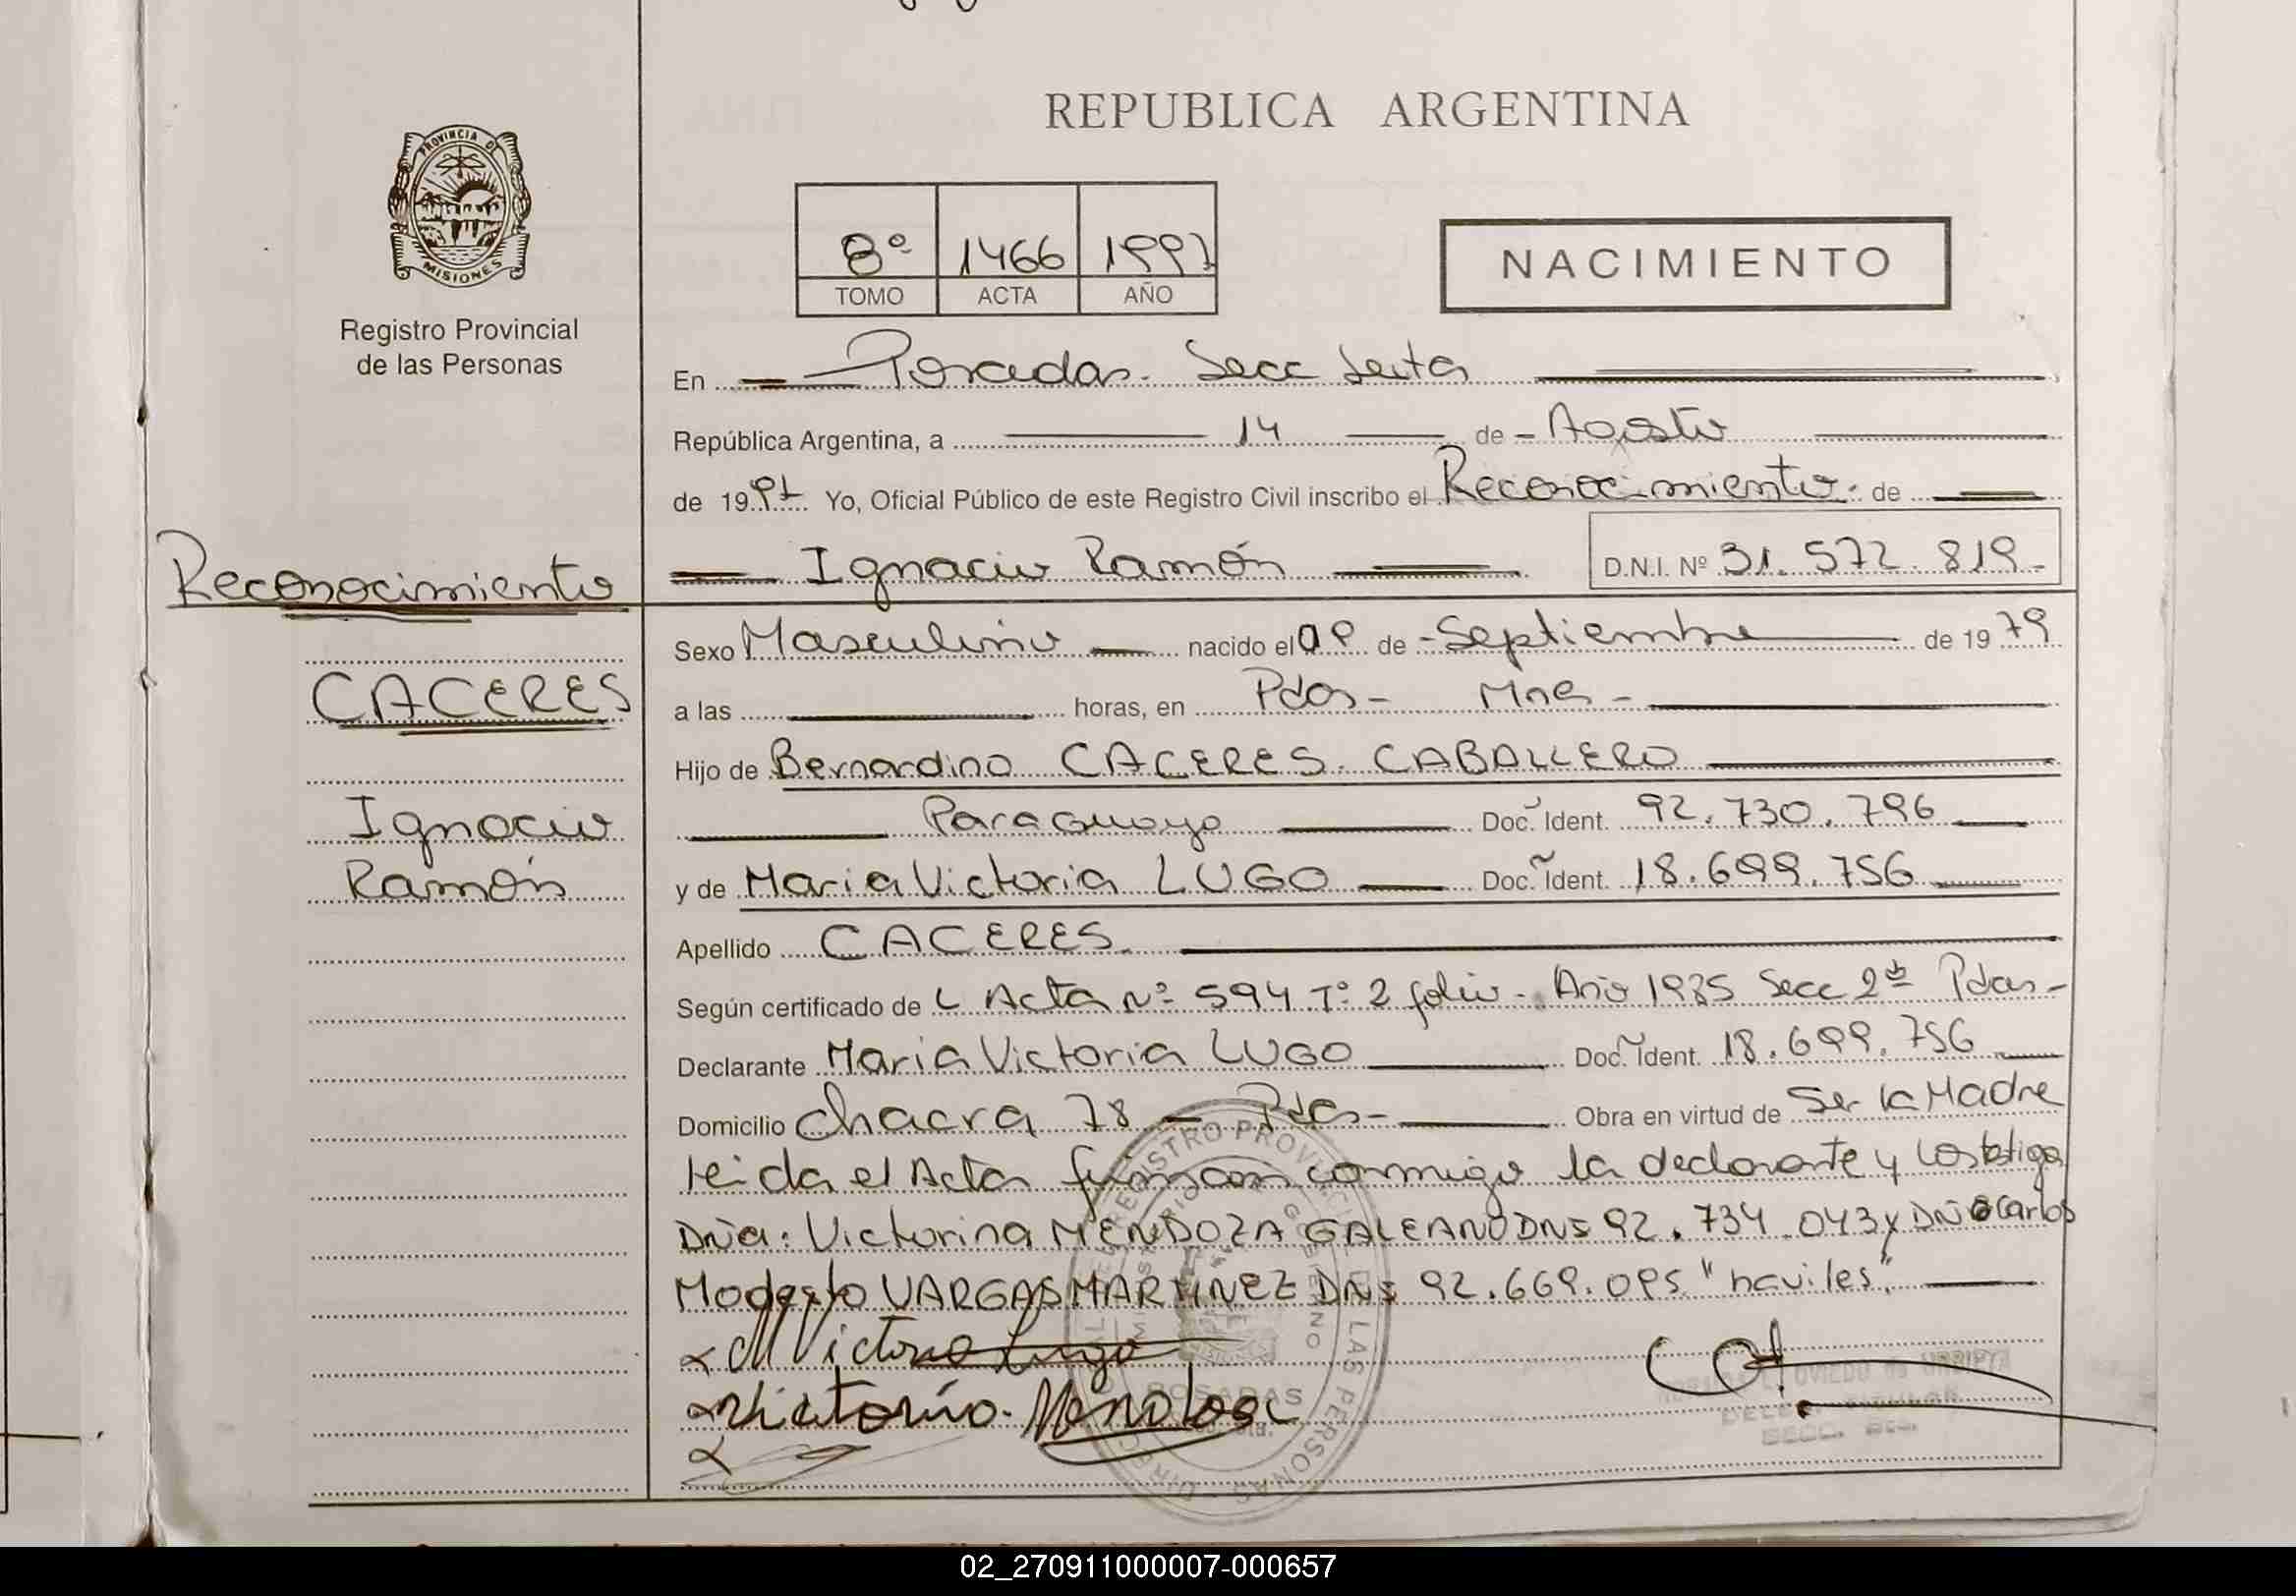 REPUBLICA ARGENTINA
PROVINCIA DE
MISIONES
Registro Provincial
de las Personas
8º 1466 1997
TOMO ACTA AÑO
NACIMIENTO
En Posadas. Secc Sexta
República Argentina, a 14 de Agosto
de 1997 Yo, Oficial Público de este Registro Civil inscribo el Reconocimiento de
Ignacio Ramón D.N.I. Nº 31.572.819-
Reconocimiento
CACERES
Ignacio
Ramón
Sexo Masculino nacido el 09 de Septiembre de 1979
a las horas, en Pdas- Mnes-
Hijo de Bernardino CACERES CABALLERO
Paraguayo Doc. Ident. 92.730.796
y de Maria Victoria LUGO Doc. Ident. 18.699.756
Apellido CACERES
Según certificado de Acta Nº 594 Tº 2 folio - Año 1985 Secc 2ª Pdas-
Declarante Maria Victoria LUGO Doc. Ident. 18.699.756
Domicilio Chacra 78 - Pdas- Obra en virtud de Ser la Madre
Leida el Acta firman conmigo la declarante y los testigos
Dña: Victorina MENDOZA GALEANO DNI 92.734.043 y DN Carlos
Modesto VARGAS MARTINEZ DNI 92.669.095 "haviles"
M Victoria Lugo
Victorina Mendoza
POSADAS
02_270911000007-000657